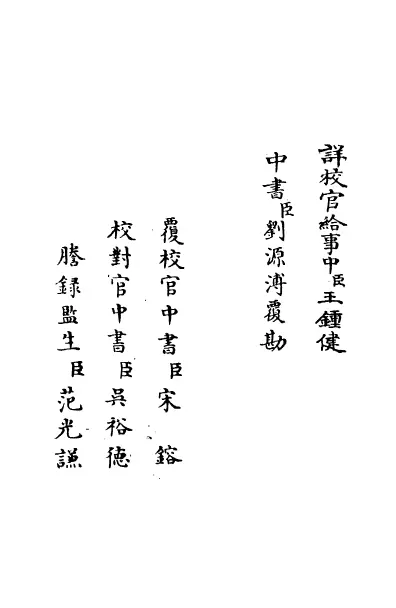 詳校官給事中臣王鍾健
中書臣劉源溥覆勘
覆校官中書臣宋鎔
校對官中書臣吳裕德
謄錄監生臣范光謙